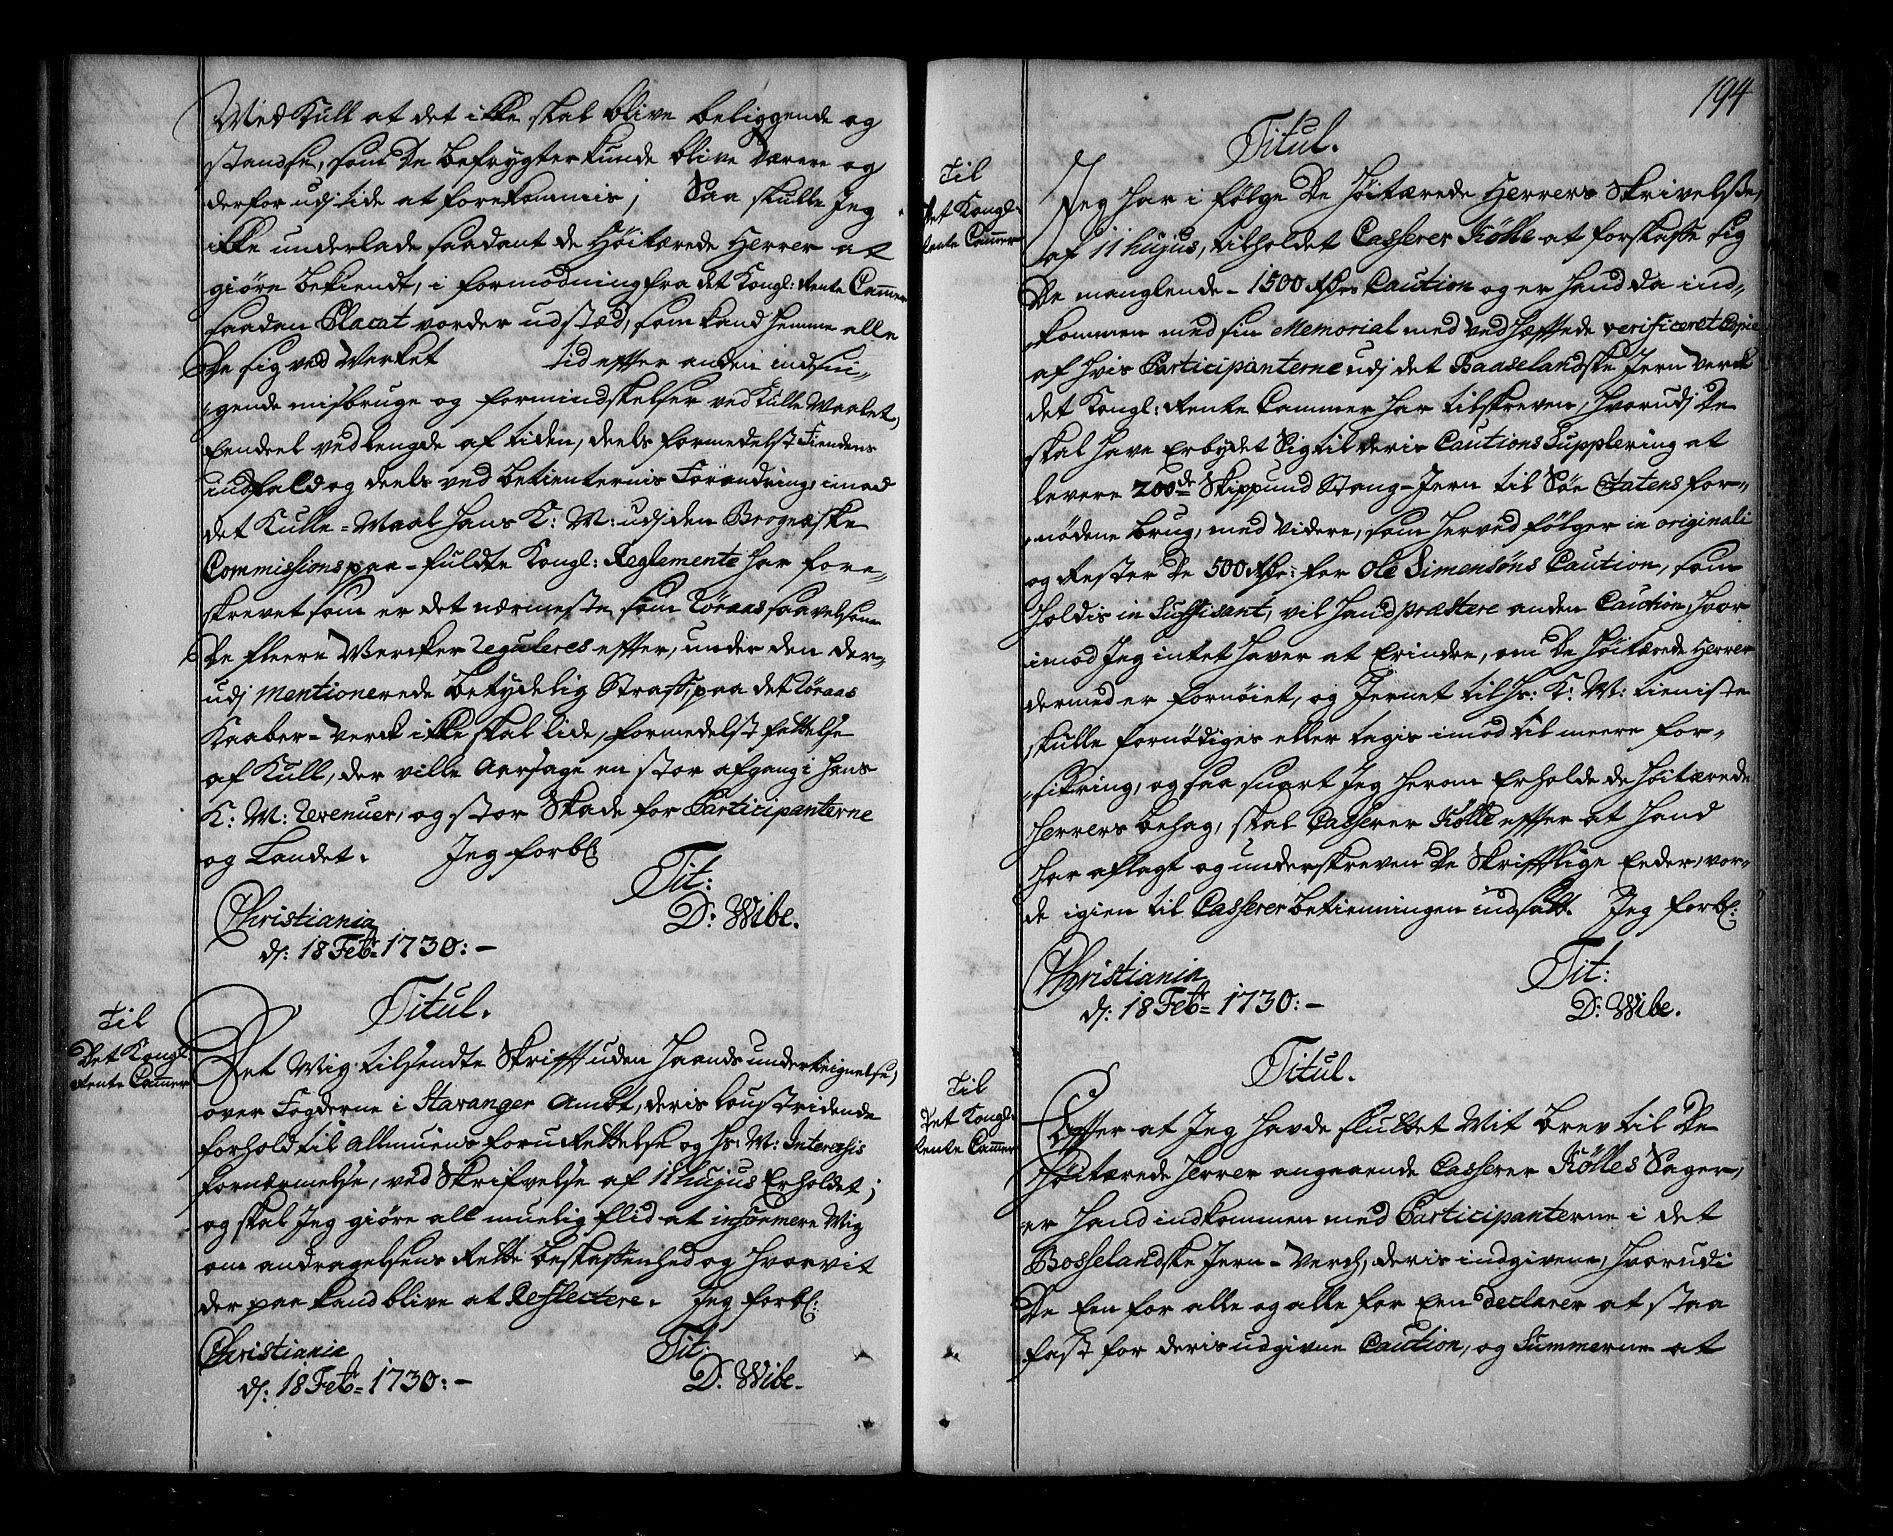 Med Kull at det ikke skal blive beliggende og
standse, som De befrygter kunde blive Værre og
derfor udj tide at forekommis; Saa skulle Jeg
ikke underlade saadant de Høitærede Herrer at
giøre bekiendt, i formodning fra det Kongl: Rente Cammer
saadan Placat vorder udstæd, som kand hemme alle
De sig ved Verket tid efter anden indsni-
gende misbruge og formindskelser ved Kulle Maalet,
Eendeel ved lengde af tiden, deels formedelst Fiendens
indfald og deels ved betienternis Forandring, imod
det Kulle-Maal Hans K: M: udj den Brognæske
Commissions paa-fuldte Kongl: Reglemente har fore-
skrevet som er det nærmeste, som Røraas saavelsom
De fleere Wercker reguleres efter, under den der-
udj Mentionerede betydelig Straff, paa det Røraas
Kaaber-Verck ikke skal lide, formedelst fattelse
af Kull, der ville Aarsage en stor afgang i Hans
K: M: Revenuer, og stor Skade for Participanterne
og Landet. Jeg forbl:
Tit:
Christiania D: Wibe.
d: 18 Feb: 1730:-
Titul.
Til
Det Kongl:
Rente Cammer
Det Mig tilsendte Skrifft uden Haands underteignelse,
over Fogderne i Stavanger Ambt, deris lou stridende
forhold til Allmuens foruRettelse og Hs: M: Interessis
fornærmelse, ved Skrifvelse af 11 hujus Erholdet;
og skal Jeg giøre all muelig flid at informere Mig
om andragelsens Rette beskaffenhed og hvorvit
der paa kand blive at Reflectere. Jeg forbl:
Christiania Tit:
d: 18 Feb: 1730:- D: Wibe.
194
Titul.
Til
Det Kongl:
Rente Cammer
Jeg har i følge De Høitærede Herrers Skrivelse,
af 11 hujus, tilholdet Casserer Kølle at forskaffe sig
De manglende - 1500 Rdrs Caution og er hand da ind-
kommen med sin Memorial med vedhæfftede verificeret Copie
af hvis Participanterne udj det Baaselandske Jern Verck
det Kongl: Rente Cammer har tilskreven, hvorudj De
skal have Erbydet Sig til deris Cautions Supplering at
levere 200de Skippund Stang-Jern til Søe Etatens for-
nødene brug, med videre, som herved følger in originali
og Rester De 500 Rdr: for Ole Simensøns Caution, som
holdis in Suffisant, vil hand præstere anden Caution, hvor
imod Jeg intet haver at Erindre, om De Høitærede Herrer
dermed er fornøiet, og Jernet til Hs: K: M: tieniste
skulle fornødiges eller tagis imod til meere for-
sikring, og saa snart Jeg herom Erholde de Høitærede
Herrers behag, skal Casserer Kølle efter at hand
har aflagt og underskreven De Skrifftlige Eeder, vor-
de igien til Casserer betienningen indsatt. Jeg forbl:
Christiania Tit:
d: 18 Feb: 1730:- D: Wibe.
Titul.
Til
Det Kongl:
Rente Cammer
Effter at Jeg havde sluttet Mit brev til De
Høitærede Herrer angaaende Casserer Kølles Sager,
er hand indkommen med Participanterne i det
Bosselandske Jern-Verch, deris indgivene, hvorudi
De Een for alle og alle for Een declarer at staa
fast for deris udgivne Caution, og Summerne at